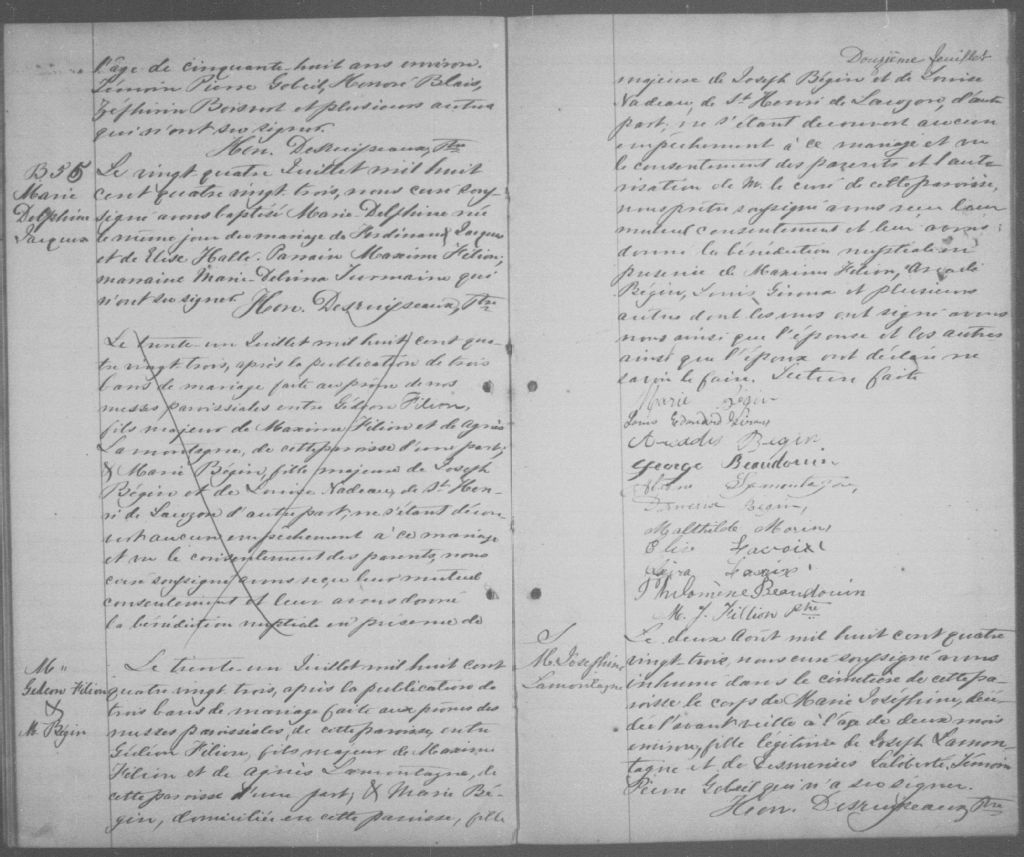 l'âge de cinquante-huit ans environ.
Témoin Pierre Gobeil, Honoré Blais,
Zéphirin Boisvert et plusieurs autres
qui n'ont su signer.
Hon. Desruisseaux, Ptre
B 55
Marie
Delphine
Jacques
Le vingt quatre Juillet mil huit
cent quatre vingt trois, nous curé sous-
signé avons baptisé Marie-Delphine née
le même jour du mariage de Ferdinand Jacques
et de Elise Hallé. Parrain Maxime Filion,
marraine Marie-Delvina Turmaine qui
n'ont su signer. Hon. Desruisseaux, Ptre
Le trente-un Juillet mil huit cent qua-
tre vingt trois, après la publication de trois
bans de mariage faite au prône de nos
messes paroissiales entre Gédéon Filion,
fils majeur de Maxime Filion et de Agnès
Lamontagne, de cette paroisse d'une part;
& Marie Bégin, fille majeure de Joseph
Bégin et de Louise Nadeau, de St Hen-
ri de Lauzon d'autre part; ne s'étant décou-
vert aucun empêchement à ce mariage
et vu le consentement des parents, nous
curé soussigné avons reçu leur mutuel
consentement et leur avons donné
la bénédiction nuptiale en présence de
M"
Gédéon Filion
&
M. Bégin
Le trente-un Juillet mil huit cent
quatre vingt trois, après la publication de
trois bans de mariage faite aux prônes des
messes paroissiales, de cette paroisse, entre
Gédéon Filion, fils majeur de Maxime
Filion et de Agnès Lamontagne, de
cette paroisse d'une part; & Marie Bé-
gin, domiciliée en cette paroisse, fille
Douzième feuillet
majeure de Joseph Bégin et de Louise
Nadeau, de St Henri de Lauzon, d'autre
part; ne s'étant découvert aucun
empêchement à ce mariage et vu
le consentement des parents et l'auto-
risation de M. le curé de cette paroisse,
nous prêtre soussigné avons reçu leur
mutuel consentement et leur avons
donné la bénédiction nuptiale en
présence de Maxime Filion, Arcade
Bégin, Louis Giroux et plusieurs
autres dont les uns ont signé avec
nous ainsi que l'épouse et les autres
ainsi que l'époux ont déclaré ne
savoir le faire. Lecture faite
Marie Bégin
Louis Edouard Giroux
Arcades Begin
George Beaudouin
Lamontagne,
Begin,
Malthilde Morin
Elise Lavoix
Lavoix
Philomène Beaudouin
M. J. Fillion ptre
S
M. Joséphine
Lamontagne
Le deux Août mil huit cent quatre
vingt trois, nous curé soussigné avons
inhumé dans le cimetière de cette pa-
roisse le corps de Marie Joséphine, décé-
dée l'avant veille à l'âge de deux mois
environ, fille légitime de Joseph Lamon-
tagne et de Desmerises Laliberté. Témoin
Pierre Gobeil qui n'a su signer.
Hon. Desruisseaux Ptre